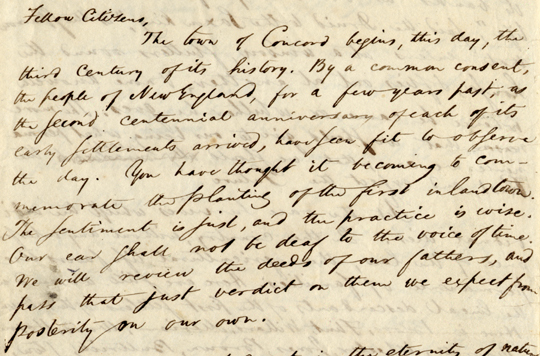 Fellow Citizens,
The town of Concord begins, this day, the
third century of its history. By a common consent,
the people of New England, for a few years past, as
the second centennial anniversary of each of its
early settlements arrived, have seen fit to observe
the day. You have thought it becoming to com-
memorate the planting of the first inland town.
The sentiment is just, and the practice is wise.
Our ear shall not be deaf to the voice of time.
We will review the deeds of our fathers, and
pass that just verdict on them we expect from
posterity on our own.
the eternity of nature